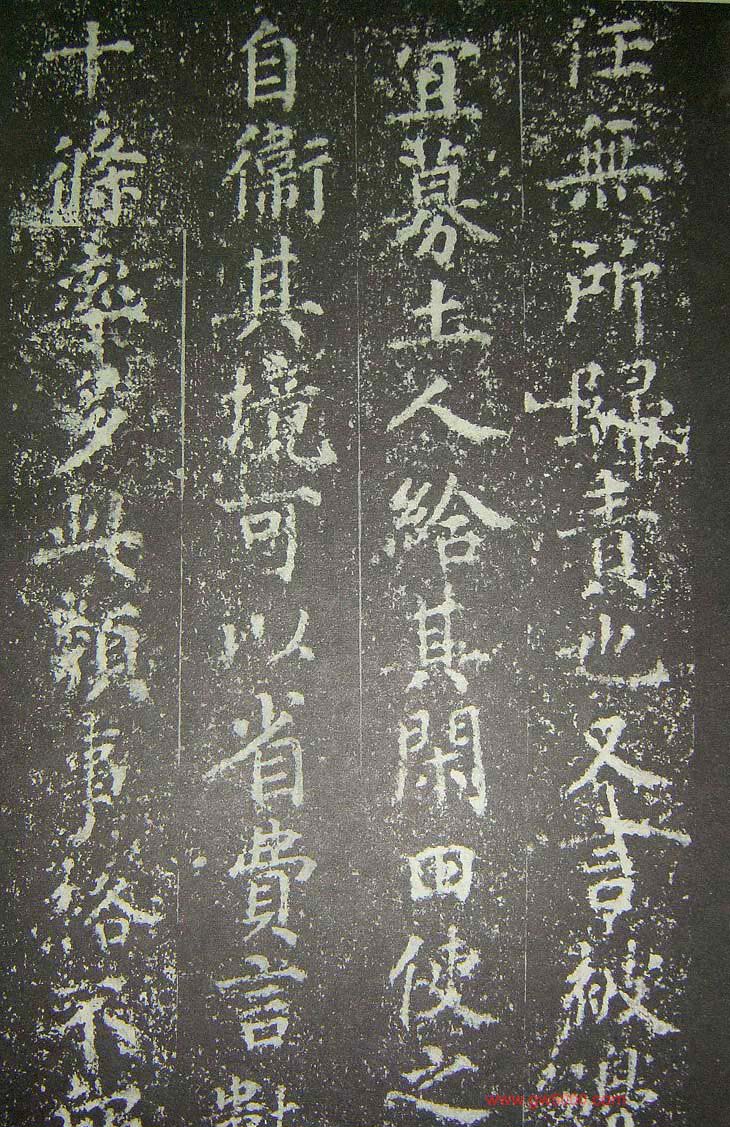 任無所歸責也又言被邊
宜募土人給其閑田使之
自衛其境可以省費言對
十條率多此類事格不